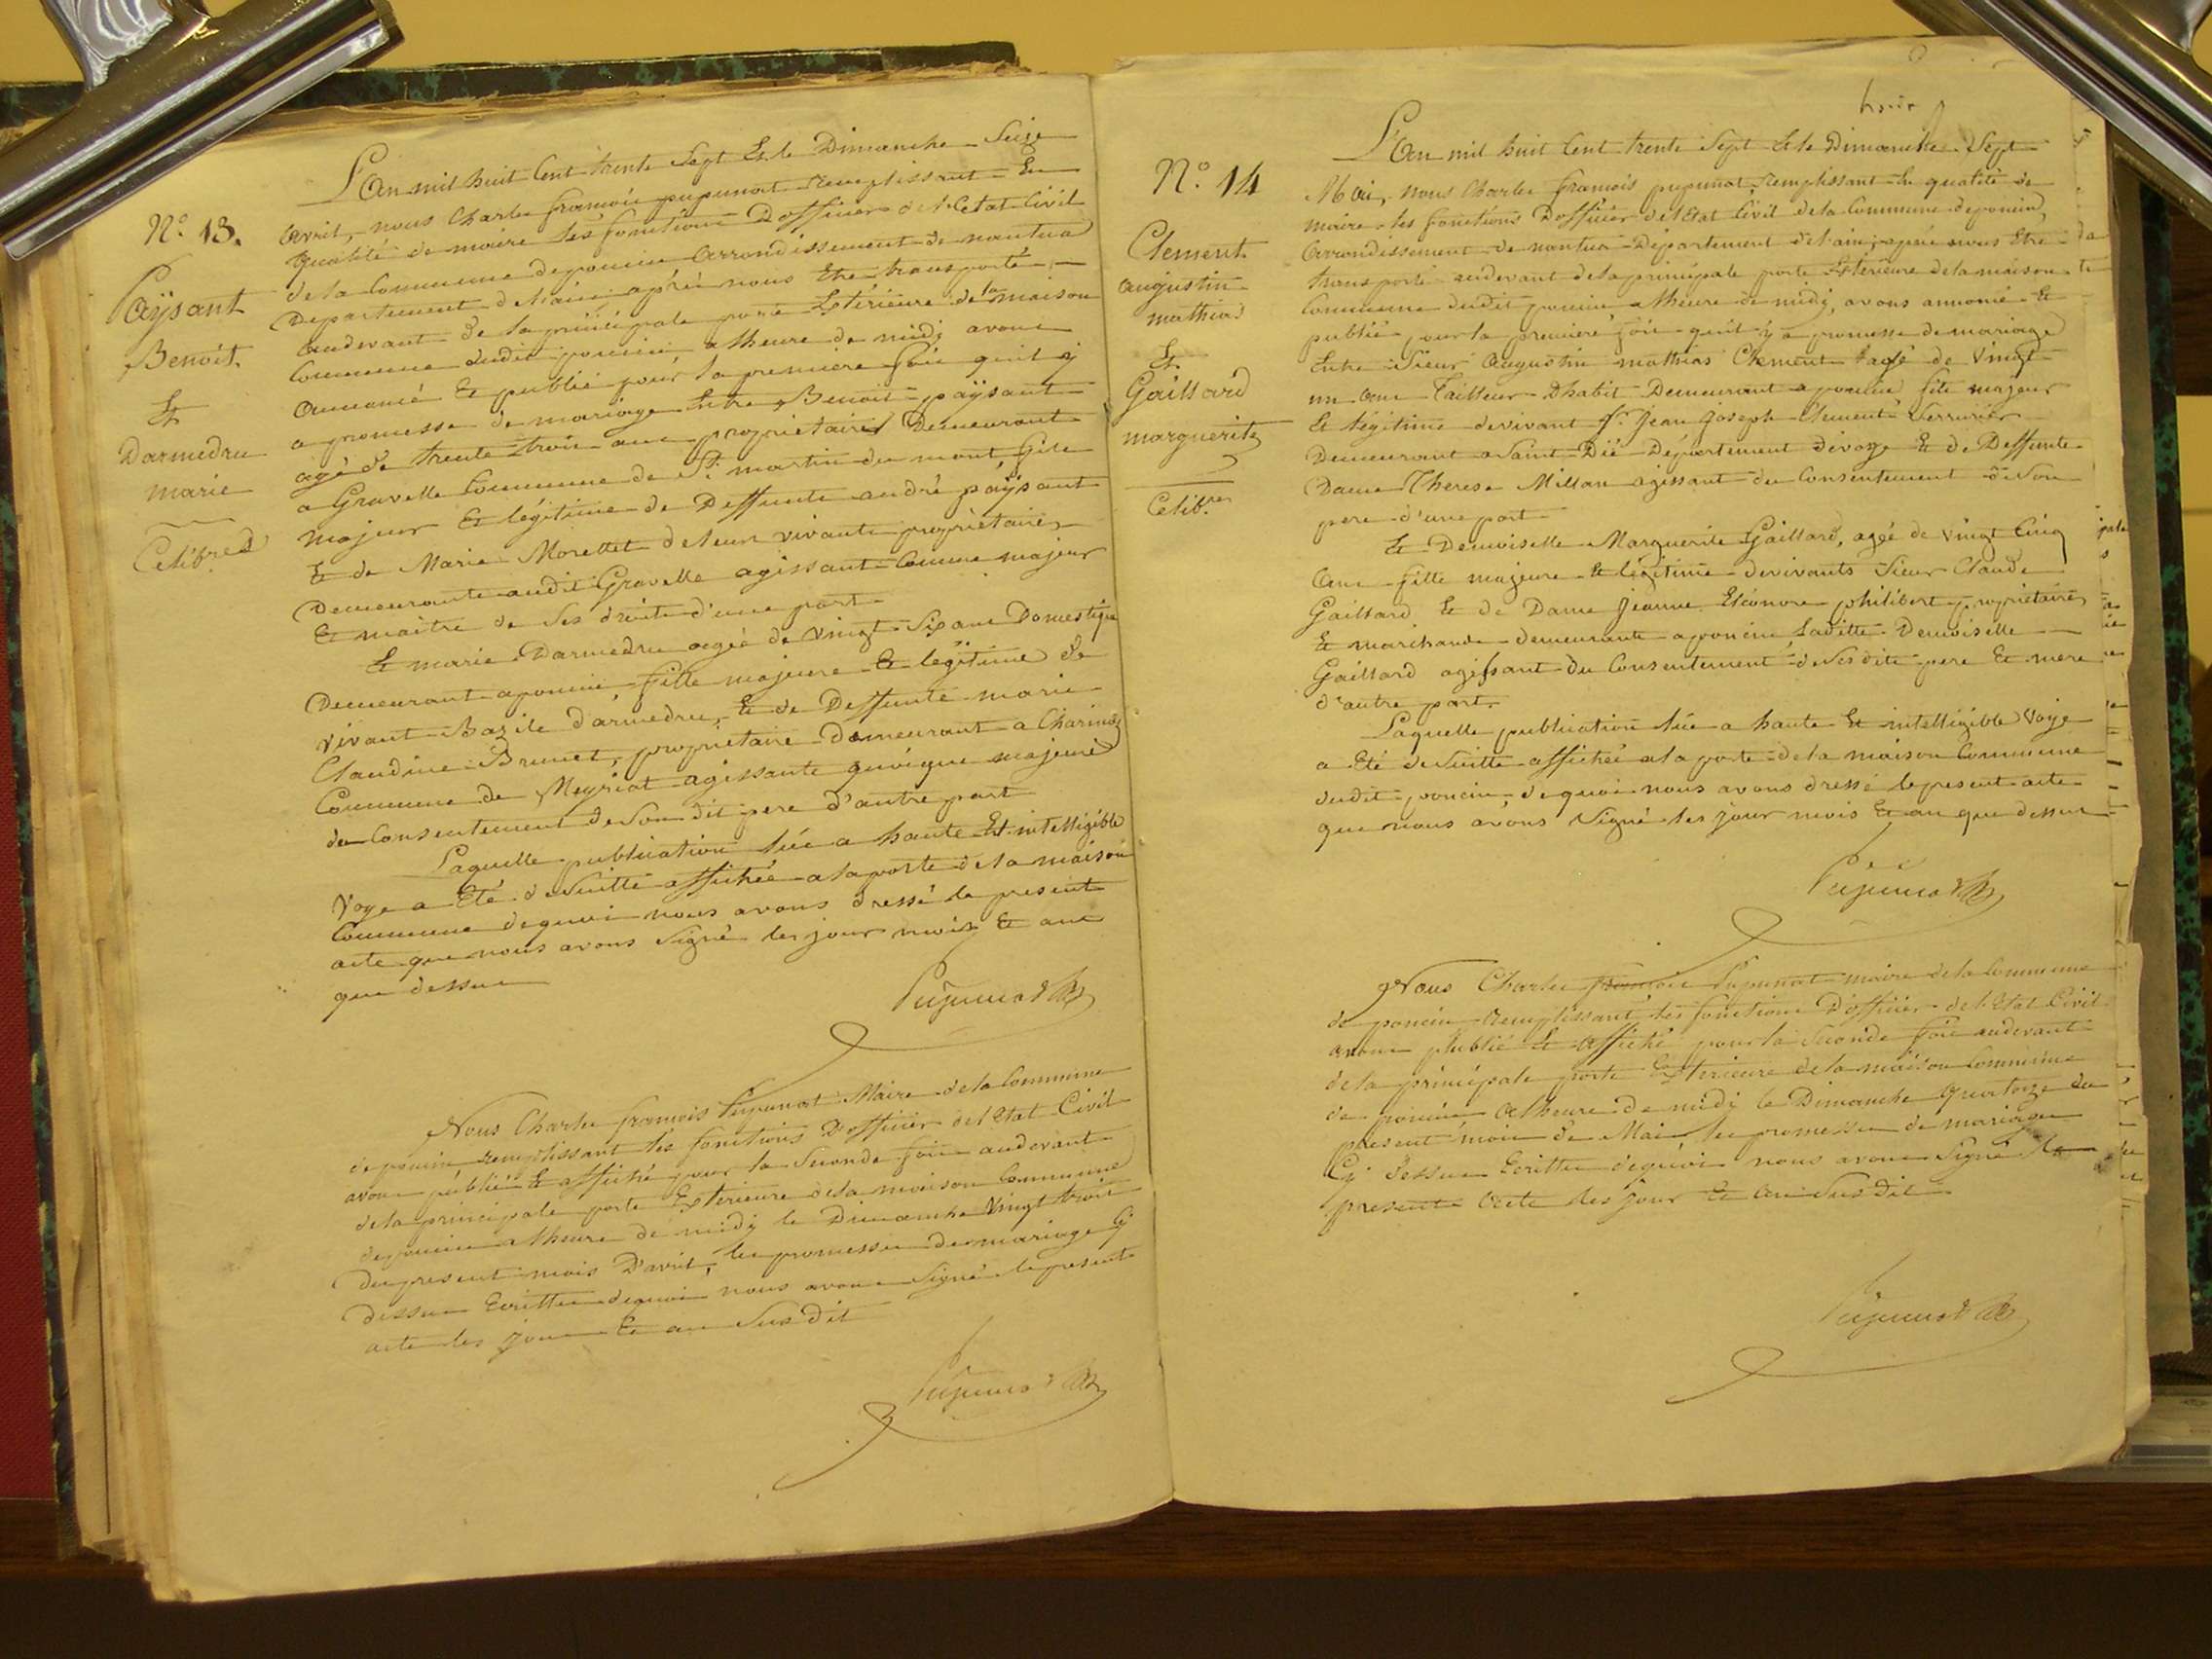 N.° 13.
Païsant
Benoit.
Et
Darmedru
marie
Celib.res
L'An mil huit Cent trente Sept Et le Dimanche Seize
avril, nous Charles françois pupunat remplissant En
qualité de maire les fonctions D'officier de l'Etat Civil
de la Commune de poncin Arrondissement de nantua
Departement de l'ain, après nous Etre transporté
audevant de la principale porte Extérieure de la maison
Commune dudit poncin, a lheure de midi, avons
annoncé Et publié pour la premiere fois quil y
a promesse de mariage Entre Benoit païsant
agé de trente trois ans proprietaire Demeurant
a Gravelle Commune de St. martin du mont, fils
majeur Et légitime de Deffunts andré païsant
Et de Marie Morettet de leur vivants proprietaires
Demeurants audit Gravelle agissant Comme majeur
Et maitre de Ses droits d'une part
Et marie Darmedru agée de vingt Six ans Domestique
Demeurant a poncin, fille majeure Et légitime de
vivant Bazile darmedru, Et de Deffunte marie
Claudine Brunet, proprietaire Demeurant a Charinas
Commune de Meyriat agissante quoique majeure
du Consentement de Son dit pere d'autre part
Laquelle publication lüe a haute Et intelligible
Voye a Eté de Suitte affichée a la porte de la maison
Commune dequoi nous avons dressé le present
acte que nous avons Signé les jour mois Et ans
que dessus
Pupunat
Nous Charles françois Pupunat Maire de la Commune
de poncin remplissant les fonctions D'officier de l'Etat Civil
avons publié Et affiché pour la Seconde fois audevant
de la principale porte Extérieure de la maison Commune
de poncin a lheure de midy le Dimanche Vingt trois
du present mois D'avril, les promesses de mariage Cy
dessus Ecrittes dequoi nous avons Signé le present
acte les jour Et an Susdit
Pupunat
N.° 14
Clement
augustin
mathias
Et
Gaillard
marguerite
Celib.res
L'An mil huit Cent trente Sept Et le Dimanche Sept
Mai, nous Charles françois pupunat, remplissant En qualité de
maire les fonctions D'officier de l'Etat Civil de la Commune de poncin,
Arrondissement de nantua Département de l'ain, après nous Etre
transporté audevant de la principale porte Extérieure de la maison
Commune dudit poncin a lheure de midi, avons annoncé Et
publié pour la premiere fois quil y a promesse de mariage
Entre Sieur Augustin mathias Clement agé de Vingt
un ans Tailleur Dhabit Demeurant a poncin fils majeur
Et légitime de vivant Sr. Jean Joseph Clement Serrurier
Demeurant a Saint Dié Département de vosge Et de Deffunte
Dame Therese Millan agissant du Consentement de Son
pere d'une part
Et Demoiselle Marguerite Gaillard, agée de vingt Cinq
ans fille majeure Et légitime de vivants Sieur Claude
Gaillard Et de Dame Jeanne Eléonore philibert proprietaires
Et marchands demeurants a poncin Laditte Demoiselle
Gaillard agissant du Consentement de Ses dits pere Et mere
d'autre part.
Laquelle publication lüe a haute Et intelligible Voye
a Eté de Suitte affichée a la porte de la maison Commune
dudit poncin, de quoi nous avons dressé le present acte
que nous avons Signé les jour mois Et an que dessus
Pupunat
Nous Charles françois Pupunat maire de la Commune
de poncin remplissant les fonctions D'officier de l'Etat Civil
avons publié Et Affiché pour la Seconde fois audevant
de la principale porte Extérieure de la maison Commune
de poncin a lheure de midy le Dimanche quatorze du
present mois de Mai les promesses de mariage
Cy dessus Ecrittes dequoi nous avons Signé le
present acte les jour Et an Susdit
Pupunat